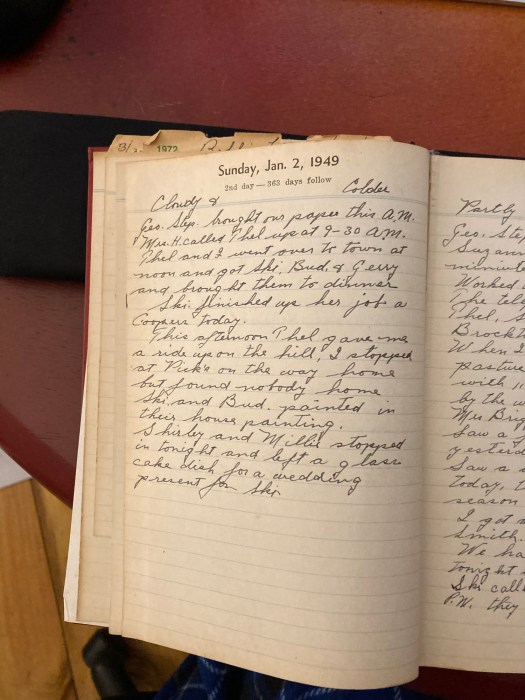 1972
Sunday, Jan. 2, 1949
2nd day — 363 days follow
Cloudy & Colder
Geo. Step. brought our paper this A.M.
Mrs. H. called Thel up at 9-30 A.M.
Thel and I went over to town at
noon and got Ski, Bud, & Gerry
and brought them to dinner
Ski finished up her job a
Coopers today.
This afternoon Thel gave me
a ride up on the hill, I stopped
at Pick's on the way home
but found nobody home
Ski and Bud painted in
their house painting.
Shirley and Millie stopped
in tonight and left a glass
cake dish for a wedding
present for Ski
Partly
Geo. Ste
Suzann
minut
Worked
The tel
Thel, S
Brock
When I
pasture
with
by the w
Mrs Brig
Saw a
yesterd
Saw a
today, t
season
I got
Smith.
We ha
tonight
Ski call
P.W. they